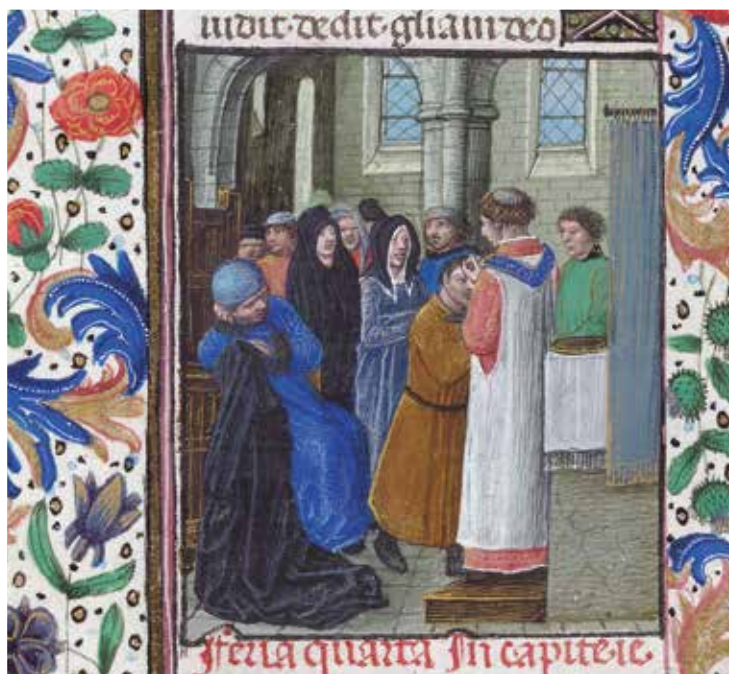 uidit·dedit·gliam deo
Feria quarta In capite·ie·